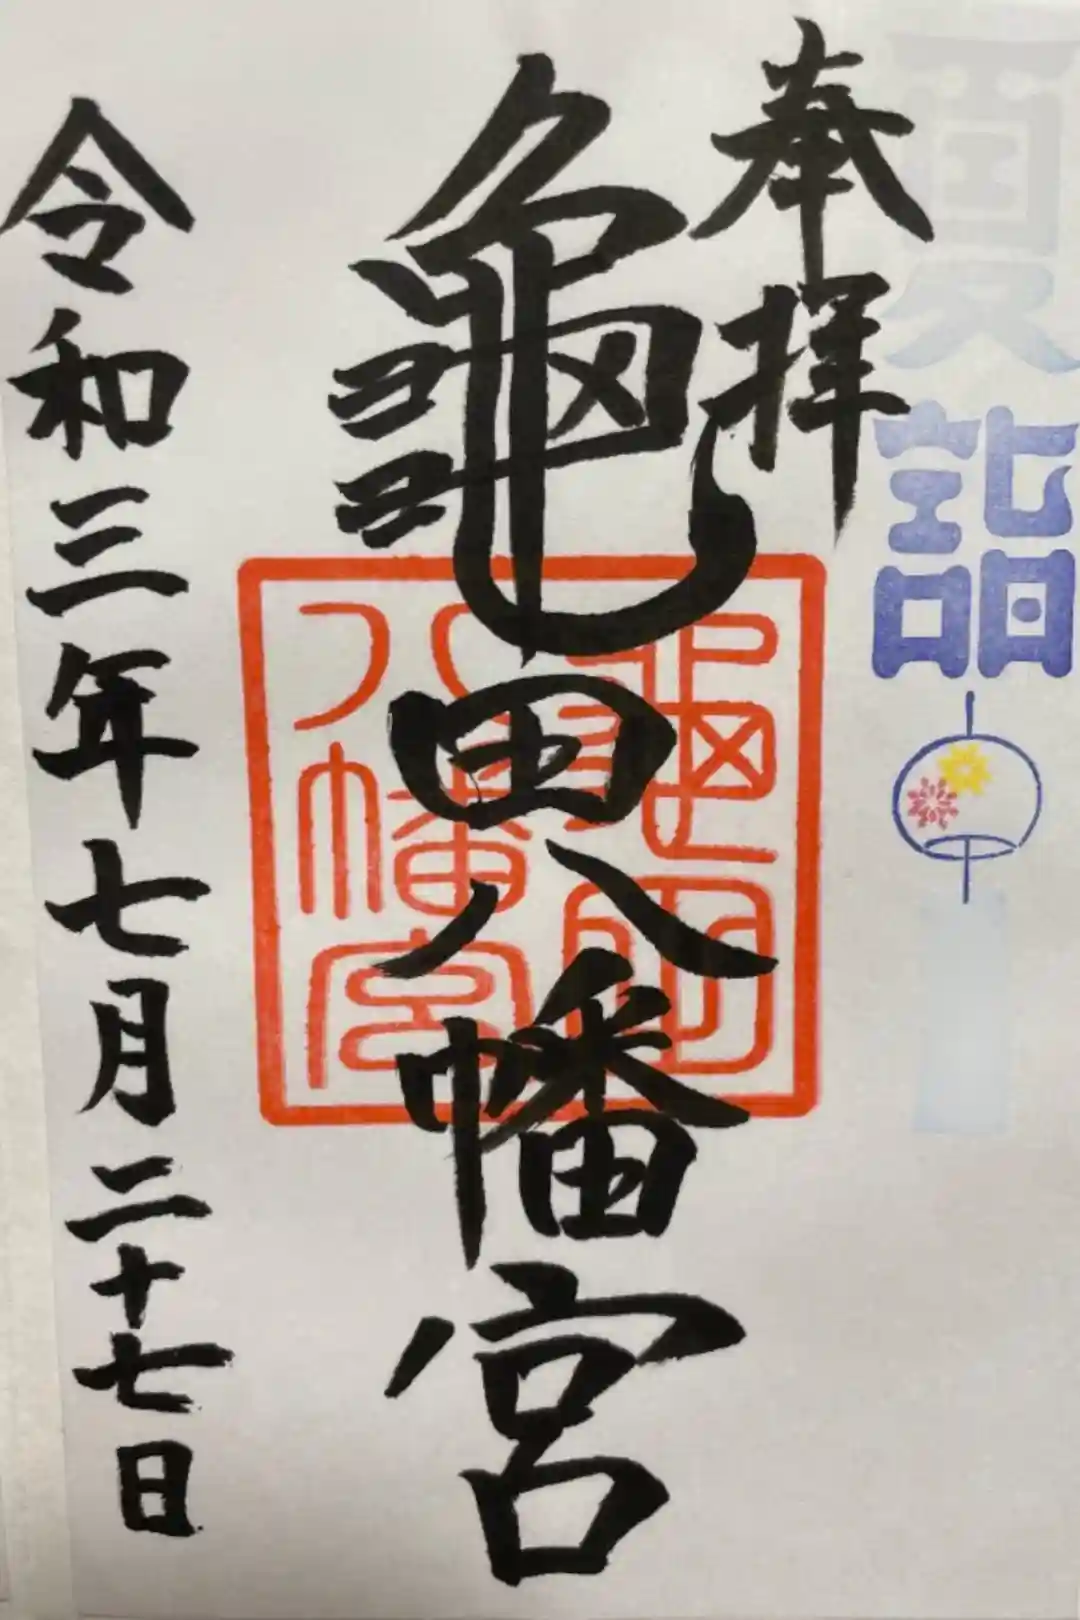 夏詣
奉拝
龜田八幡宮
龜田八幡宮
令和三年七月二十七日